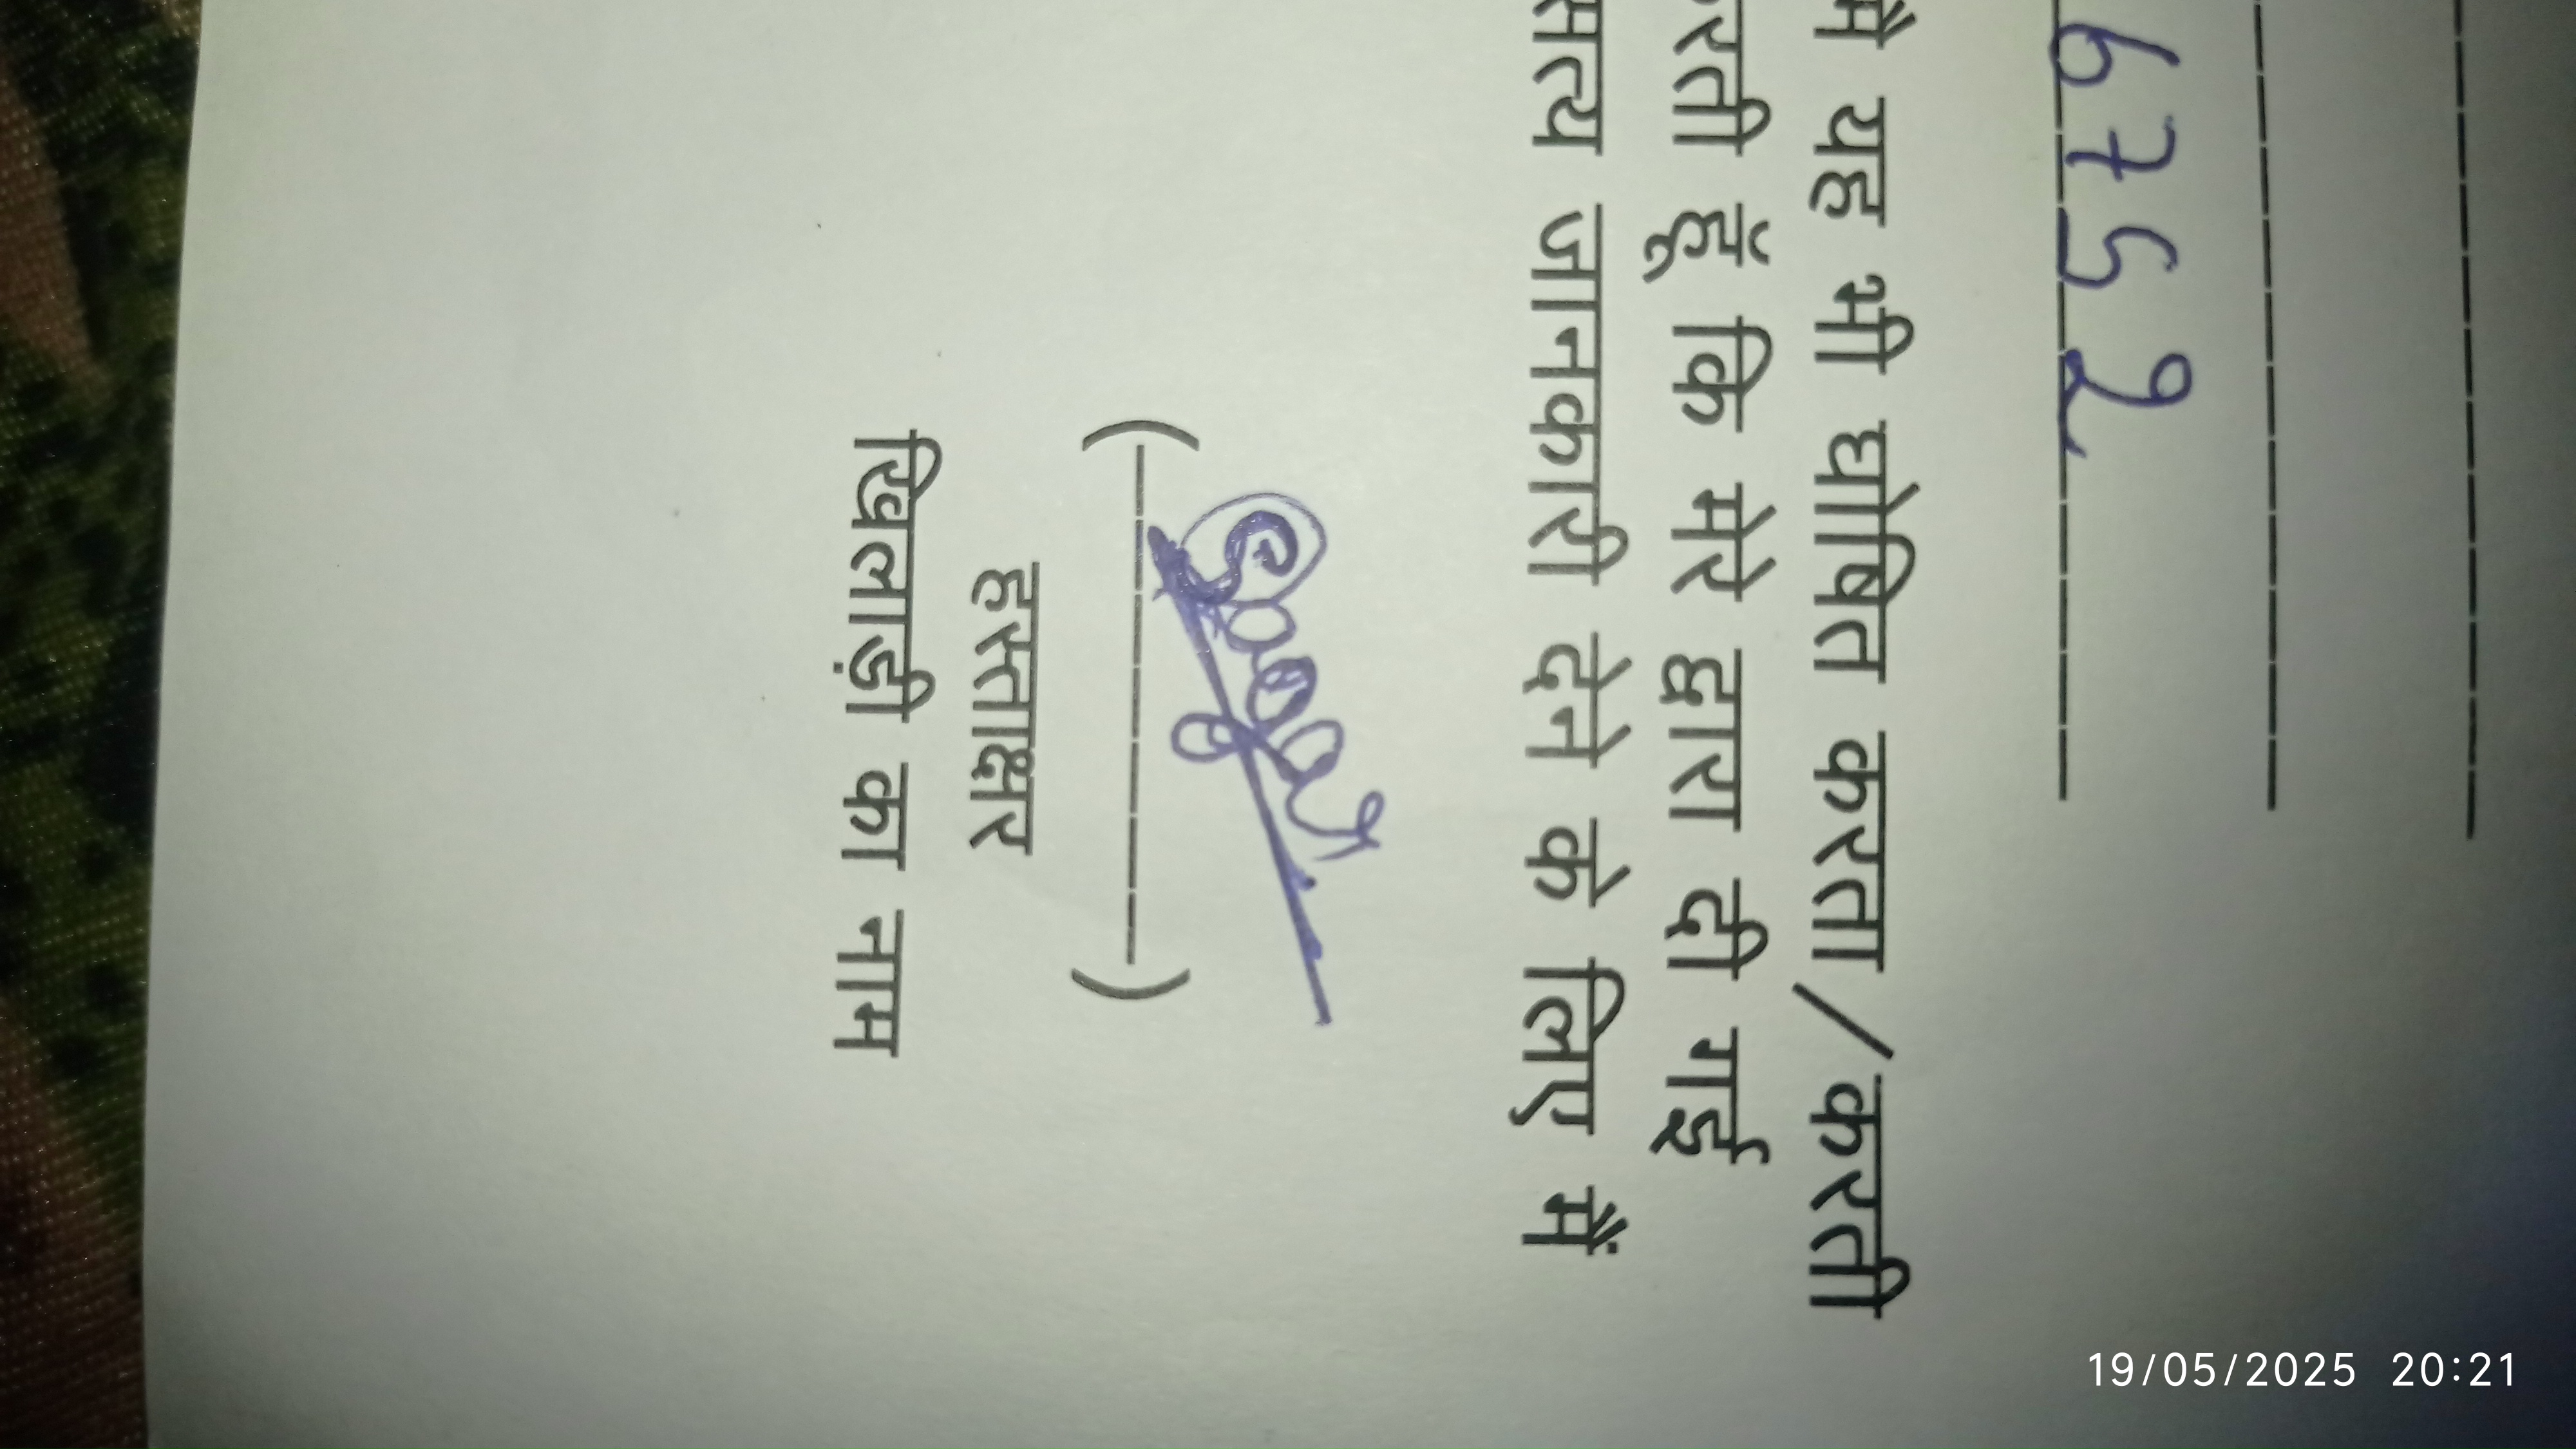 6752
मै यह भी घोषित करता/करती
रती हूँ कि मेरे द्वारा दी गई
सत्य जानकारी देने के लिए मैं
(----------------)
हस्ताक्षर
खिलाड़ी का नाम
19/05/2025 20:21